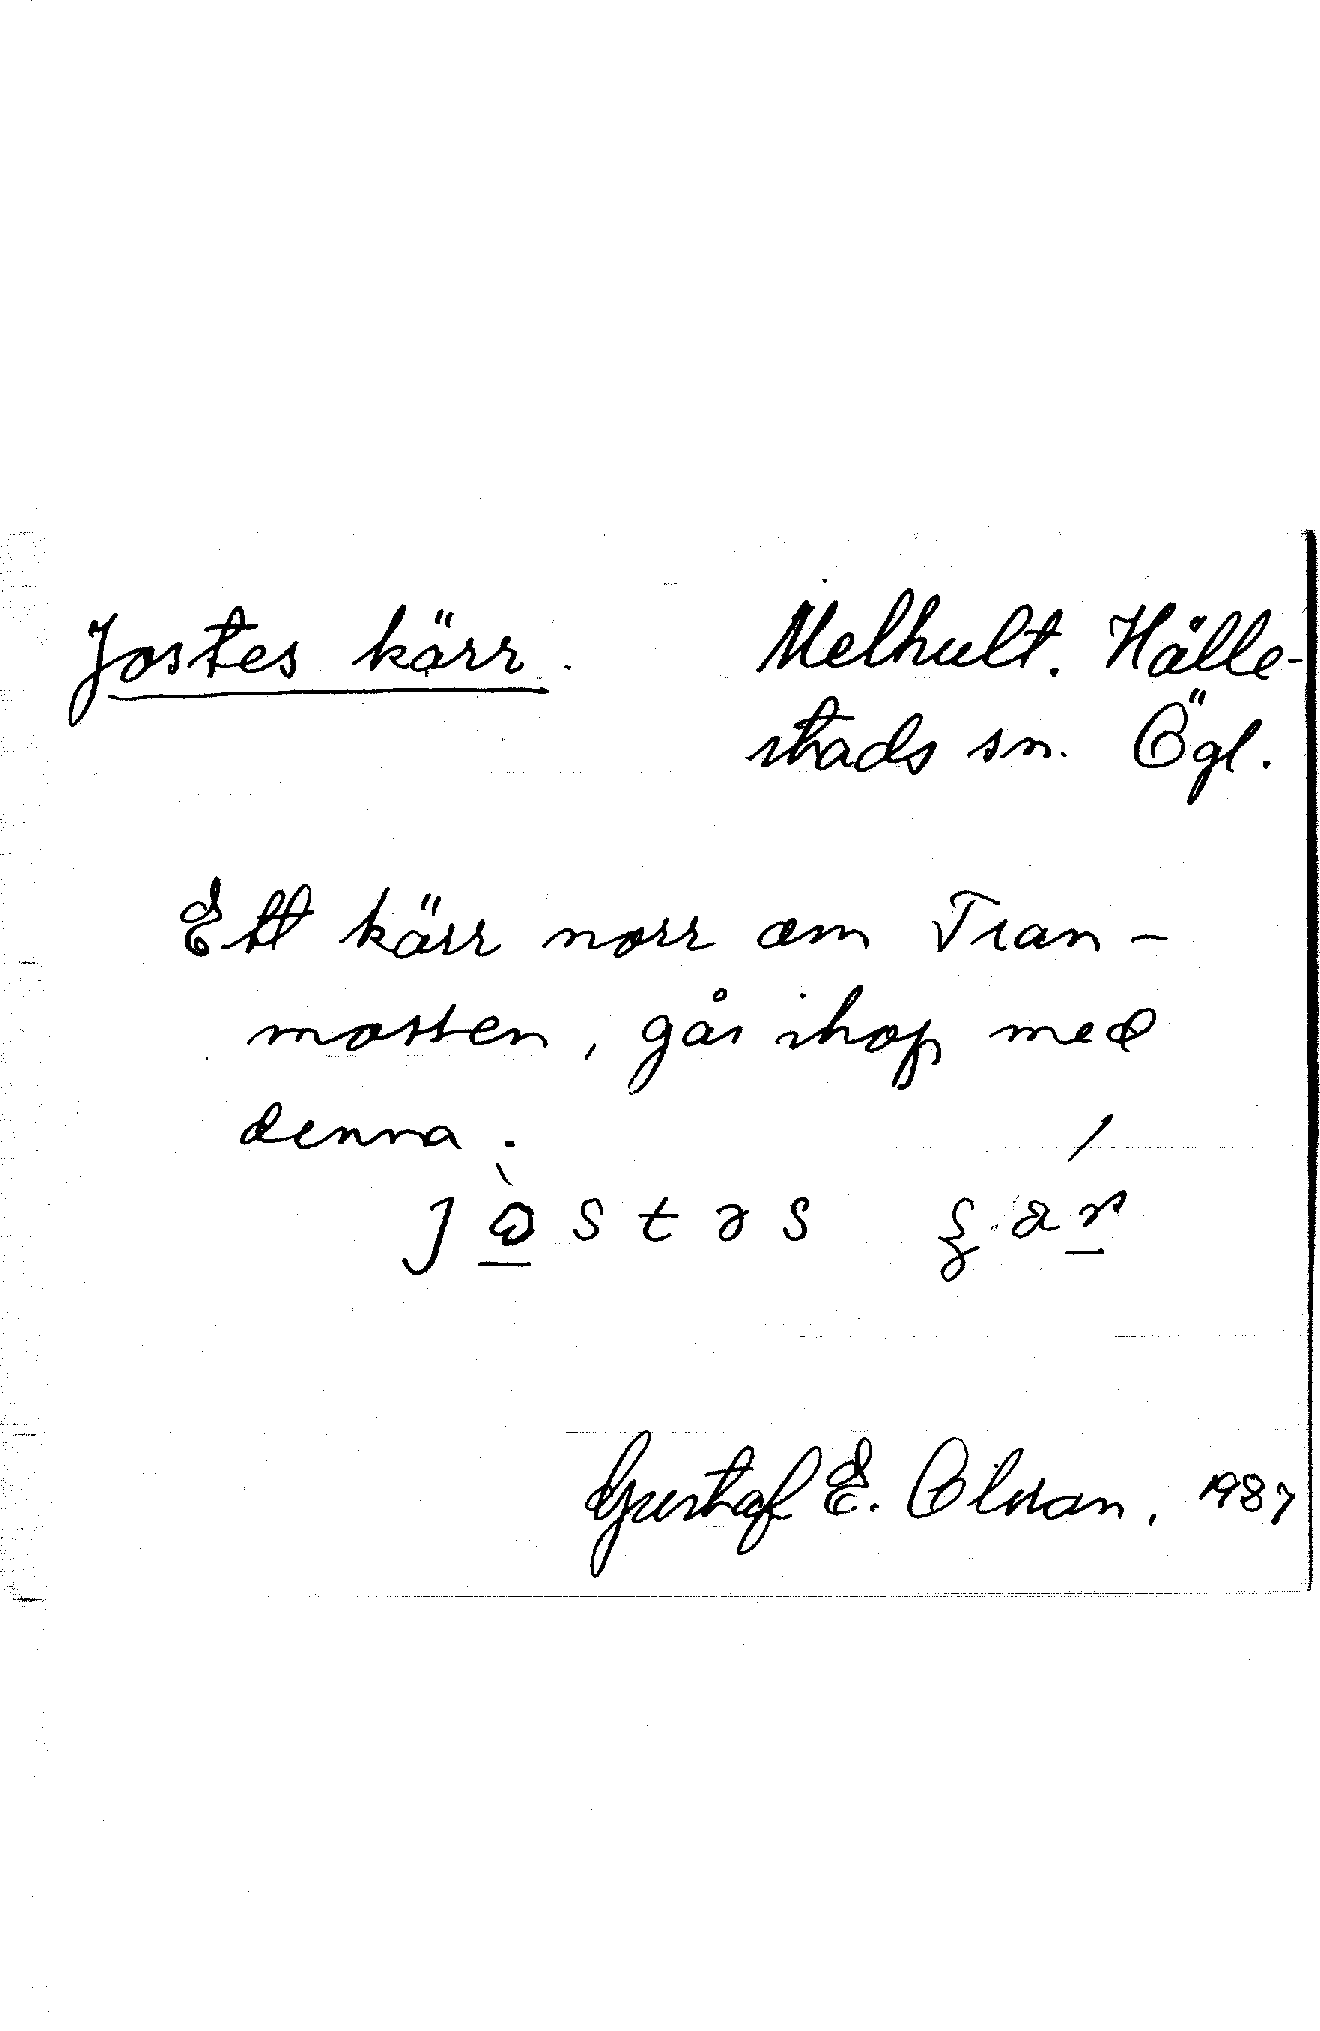 Jostes kärr. Melhult. Hälle-
stads sn. Ögl.
Ett kärr norr om Tran-
mossen, går ihop med
denna.
Gustaf E. Olsson. 1987